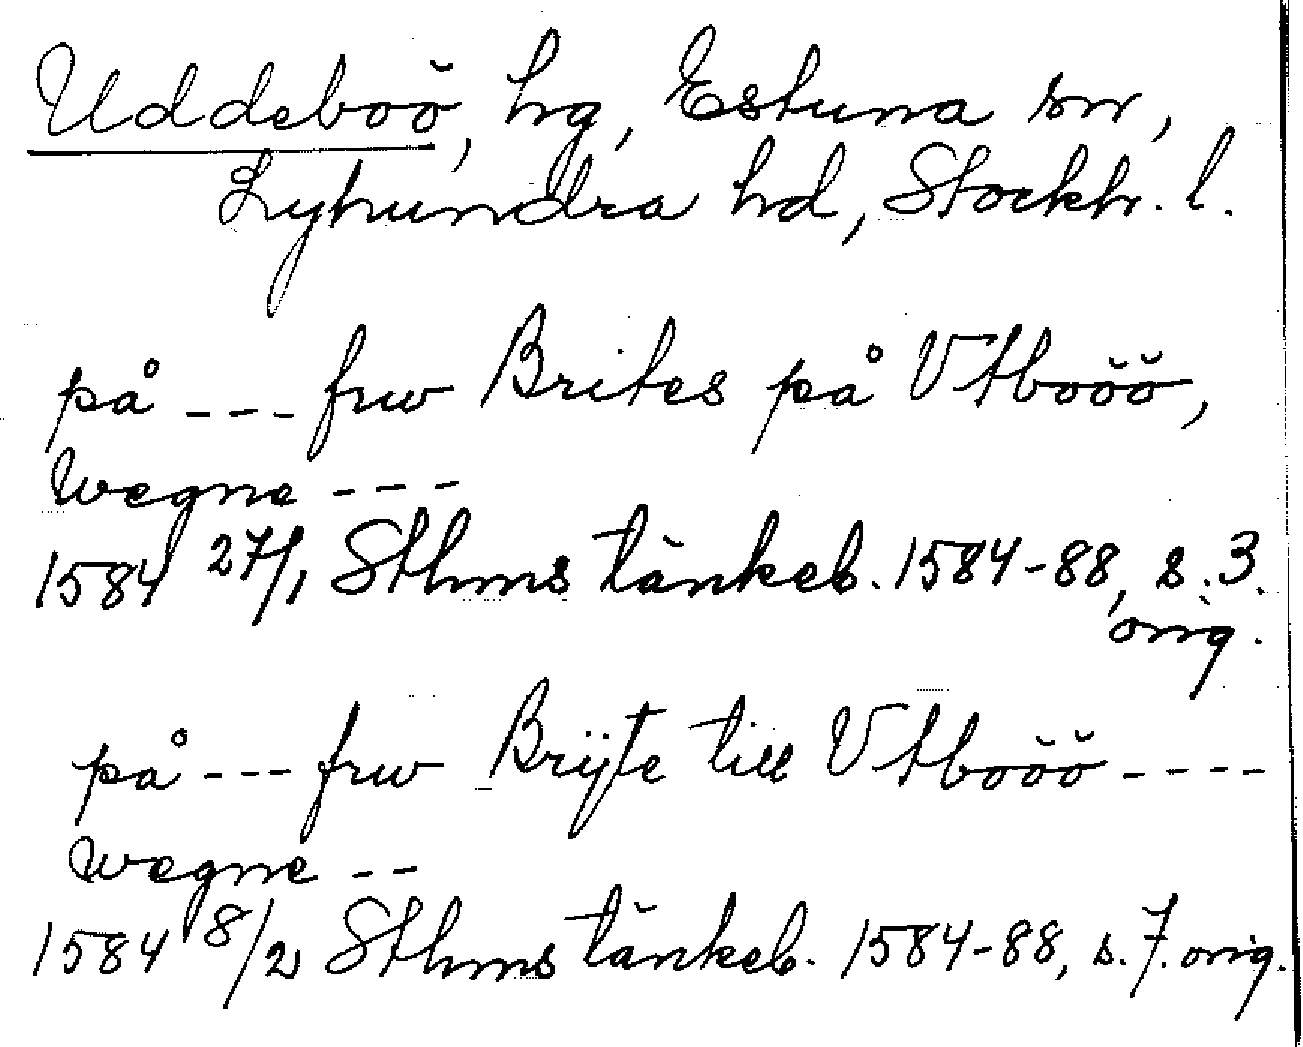 Uddeboö, hg, Estuna sn,
Lyhundra hd, Stockh. l.
på --- frw Brites på Vtboöö,
wegne ---
1584 27/1, Sthms tänkeb. 1584-88, s. 3.
orig.
på --- frw Brijte till Vtboöö ----
wegne --
1584 8/2 Sthms tänkeb. 1584-88, s. 7. orig.